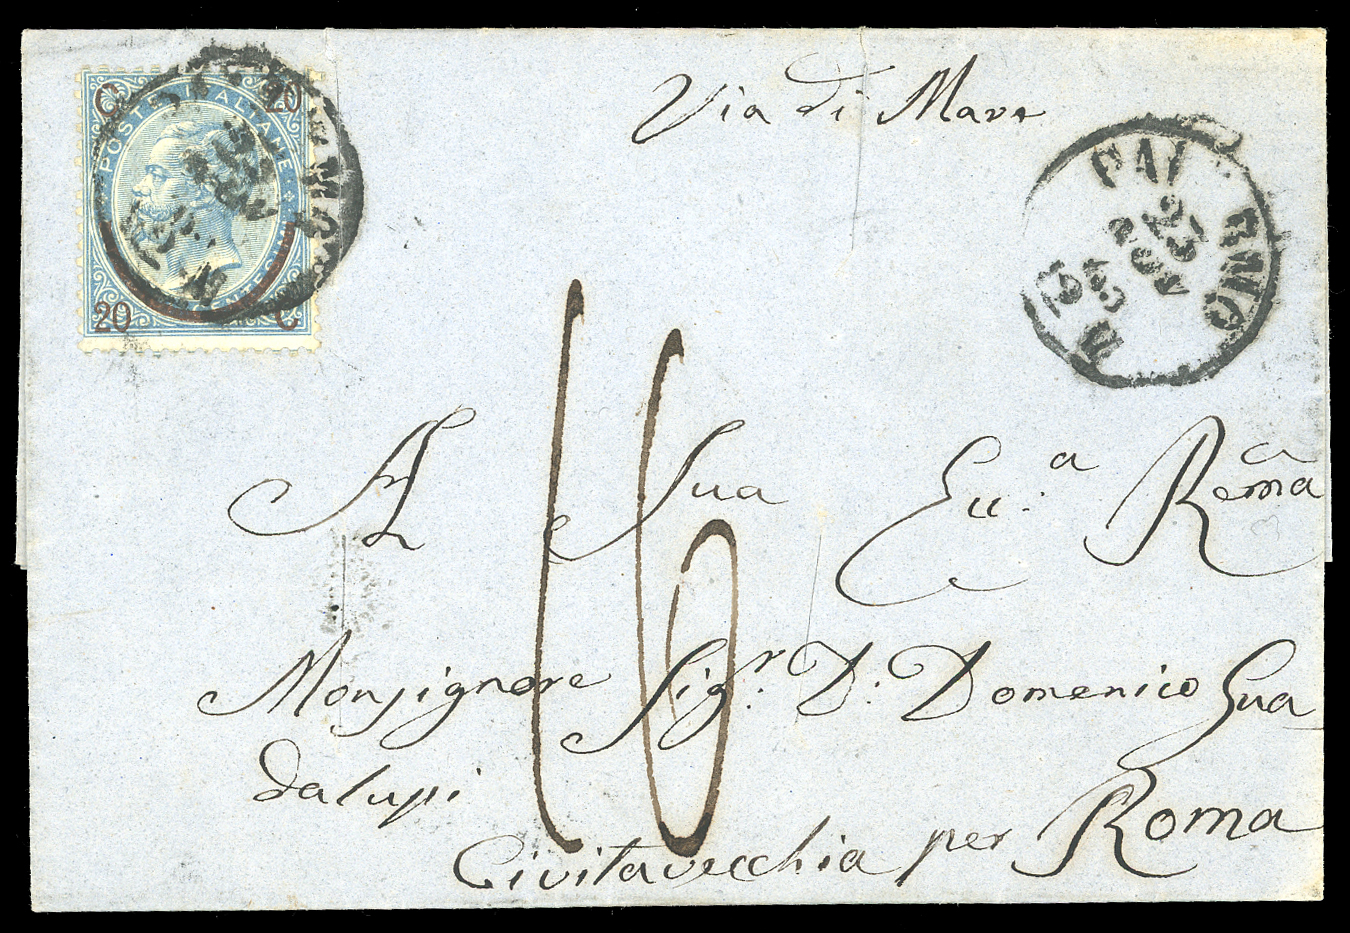 C 20
POSTE ITALIANE
20 C
Via di Mare
PALERMO
23
NOV
65
16
A Sua Ecc.a Rema
Monsignore Sigr. D. Domenico Gua
dalupi
Civitavecchia per Roma